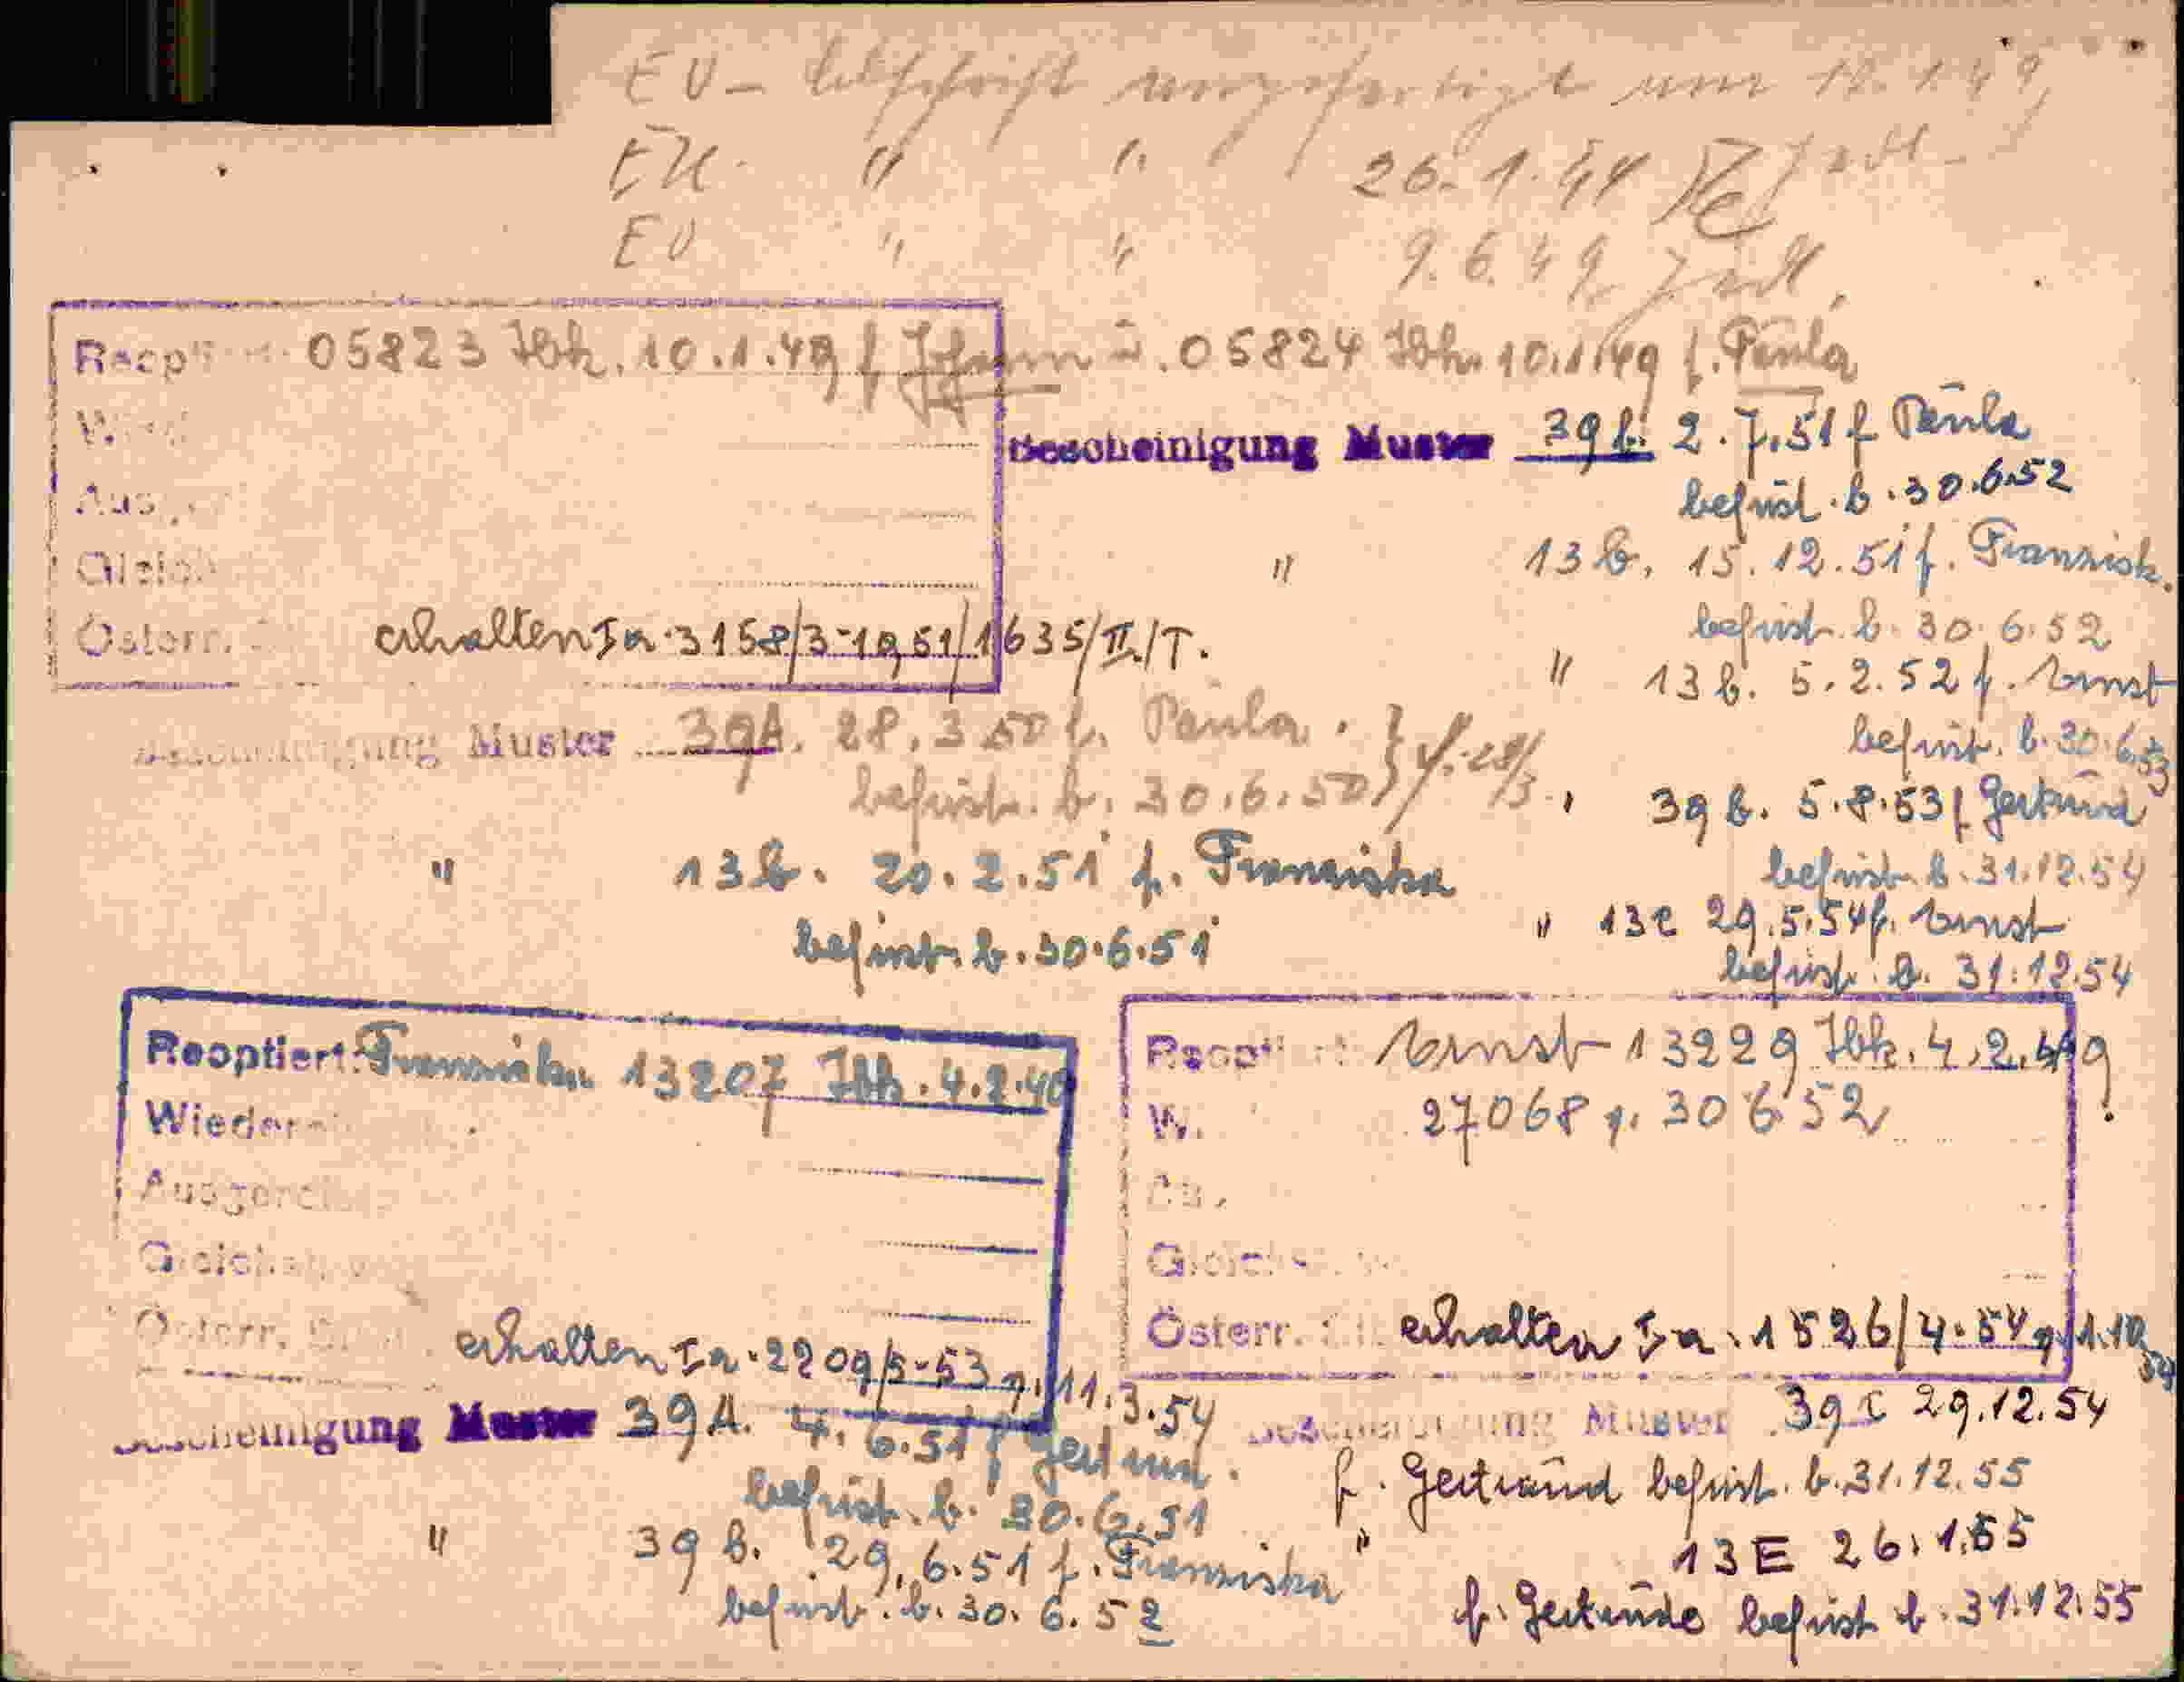 EU - Abschrift ausgefertigt am 12.1.49,
EU " " 26.1.49
EU " " 9.6.49
05823 Ibk. 10.1.49 f Johann u. 05824 Ibk. 10.1.49 f. Paula
Bescheinigung Muster 39b. 2.7.51 f Paula
befrist. b. 30.6.52
" 13b. 15.12.51 f. Franzisk.
befrist. b. 30.6.52
Österr. erhalten Ia-3158/3-1951/1635/II/T.
" 13b. 5.2.52 f. Ernst
befrist. b. 30.6.53
Muster 39A. 28.3.50 f. Paula.
befrist. b. 30.6.50
" 39b. 5.8.53 f Gertrud
befrist. b. 31.12.54
" 13b. 20.2.51 f. Franziska
befrist. b. 30.6.51
" 13c 29.5.54 f. Ernst
befrist. b. 31.12.54
Reoptiert: Franziska 13207 Ibk. 4.2.49
Wieder
Österr. erhalten Ia-2209/5-53 g. 11.3.54
Ernst 13229 Ibk. 4.2.49
27068 g. 30 6 52
Österr. erhalten Ia-1526/4-54 g. 1.10.54
Bescheinigung Muster 39A. 4.6.51 f Gertrud.
befrist. b. 30.6.51
" 39b. 29.6.51 f. Franziska
befrist. b. 30.6.52
Bescheinigung Muster 39c 29.12.54
f. Gertraud befrist. b. 31.12.55
" 13E 26.1.55
f. Gertrude befrist b. 31.12.55